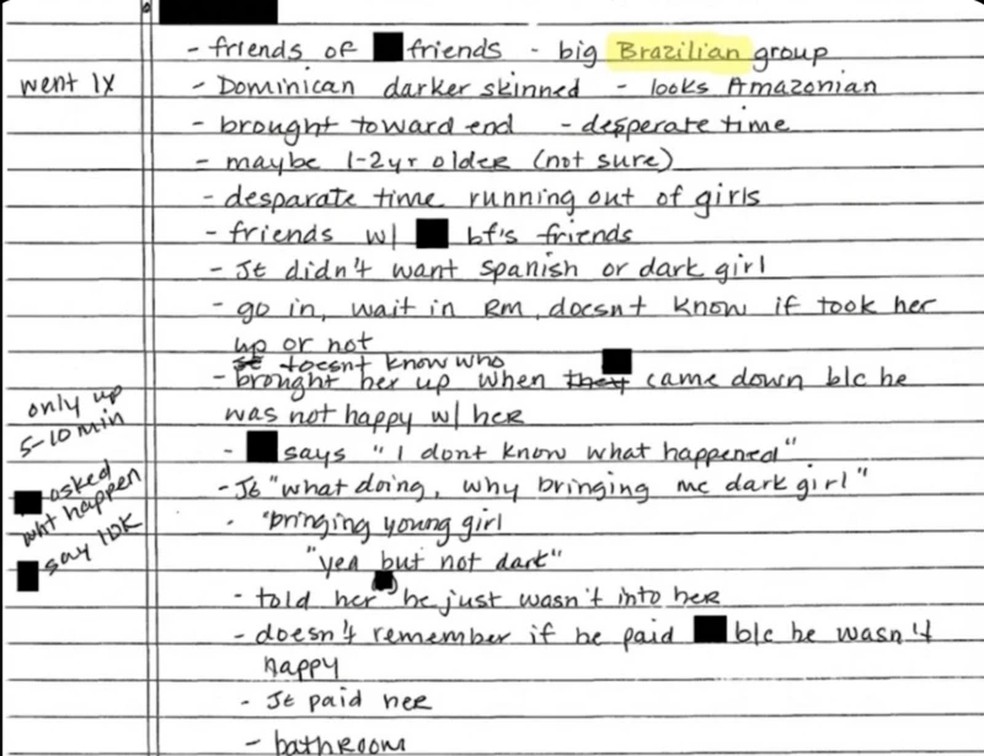 - friends of friends - big Brazilian group
went 1x
- Dominican darker skinned - looks Amazonian
- brought toward end - desperate time
- maybe 1-2yr older (not sure)
- desparate time running out of girls
- friends w/ bf's friends
- JE didn't want Spanish or dark girl
- go in, wait in RM, doesnt know if took her
up or not
doesnt know who
- brought her up when they came down b/c he
was not happy w/ her
only up
5-10 min
- says "I dont know what happened"
- JE "what doing, why bringing me dark girl"
asked
wht happen
say IDK
- "bringing young girl
"yea but not dark"
- told her he just wasn't into her
- doesn't remember if he paid b/c he wasn't
happy
- JE paid her
- bathroom